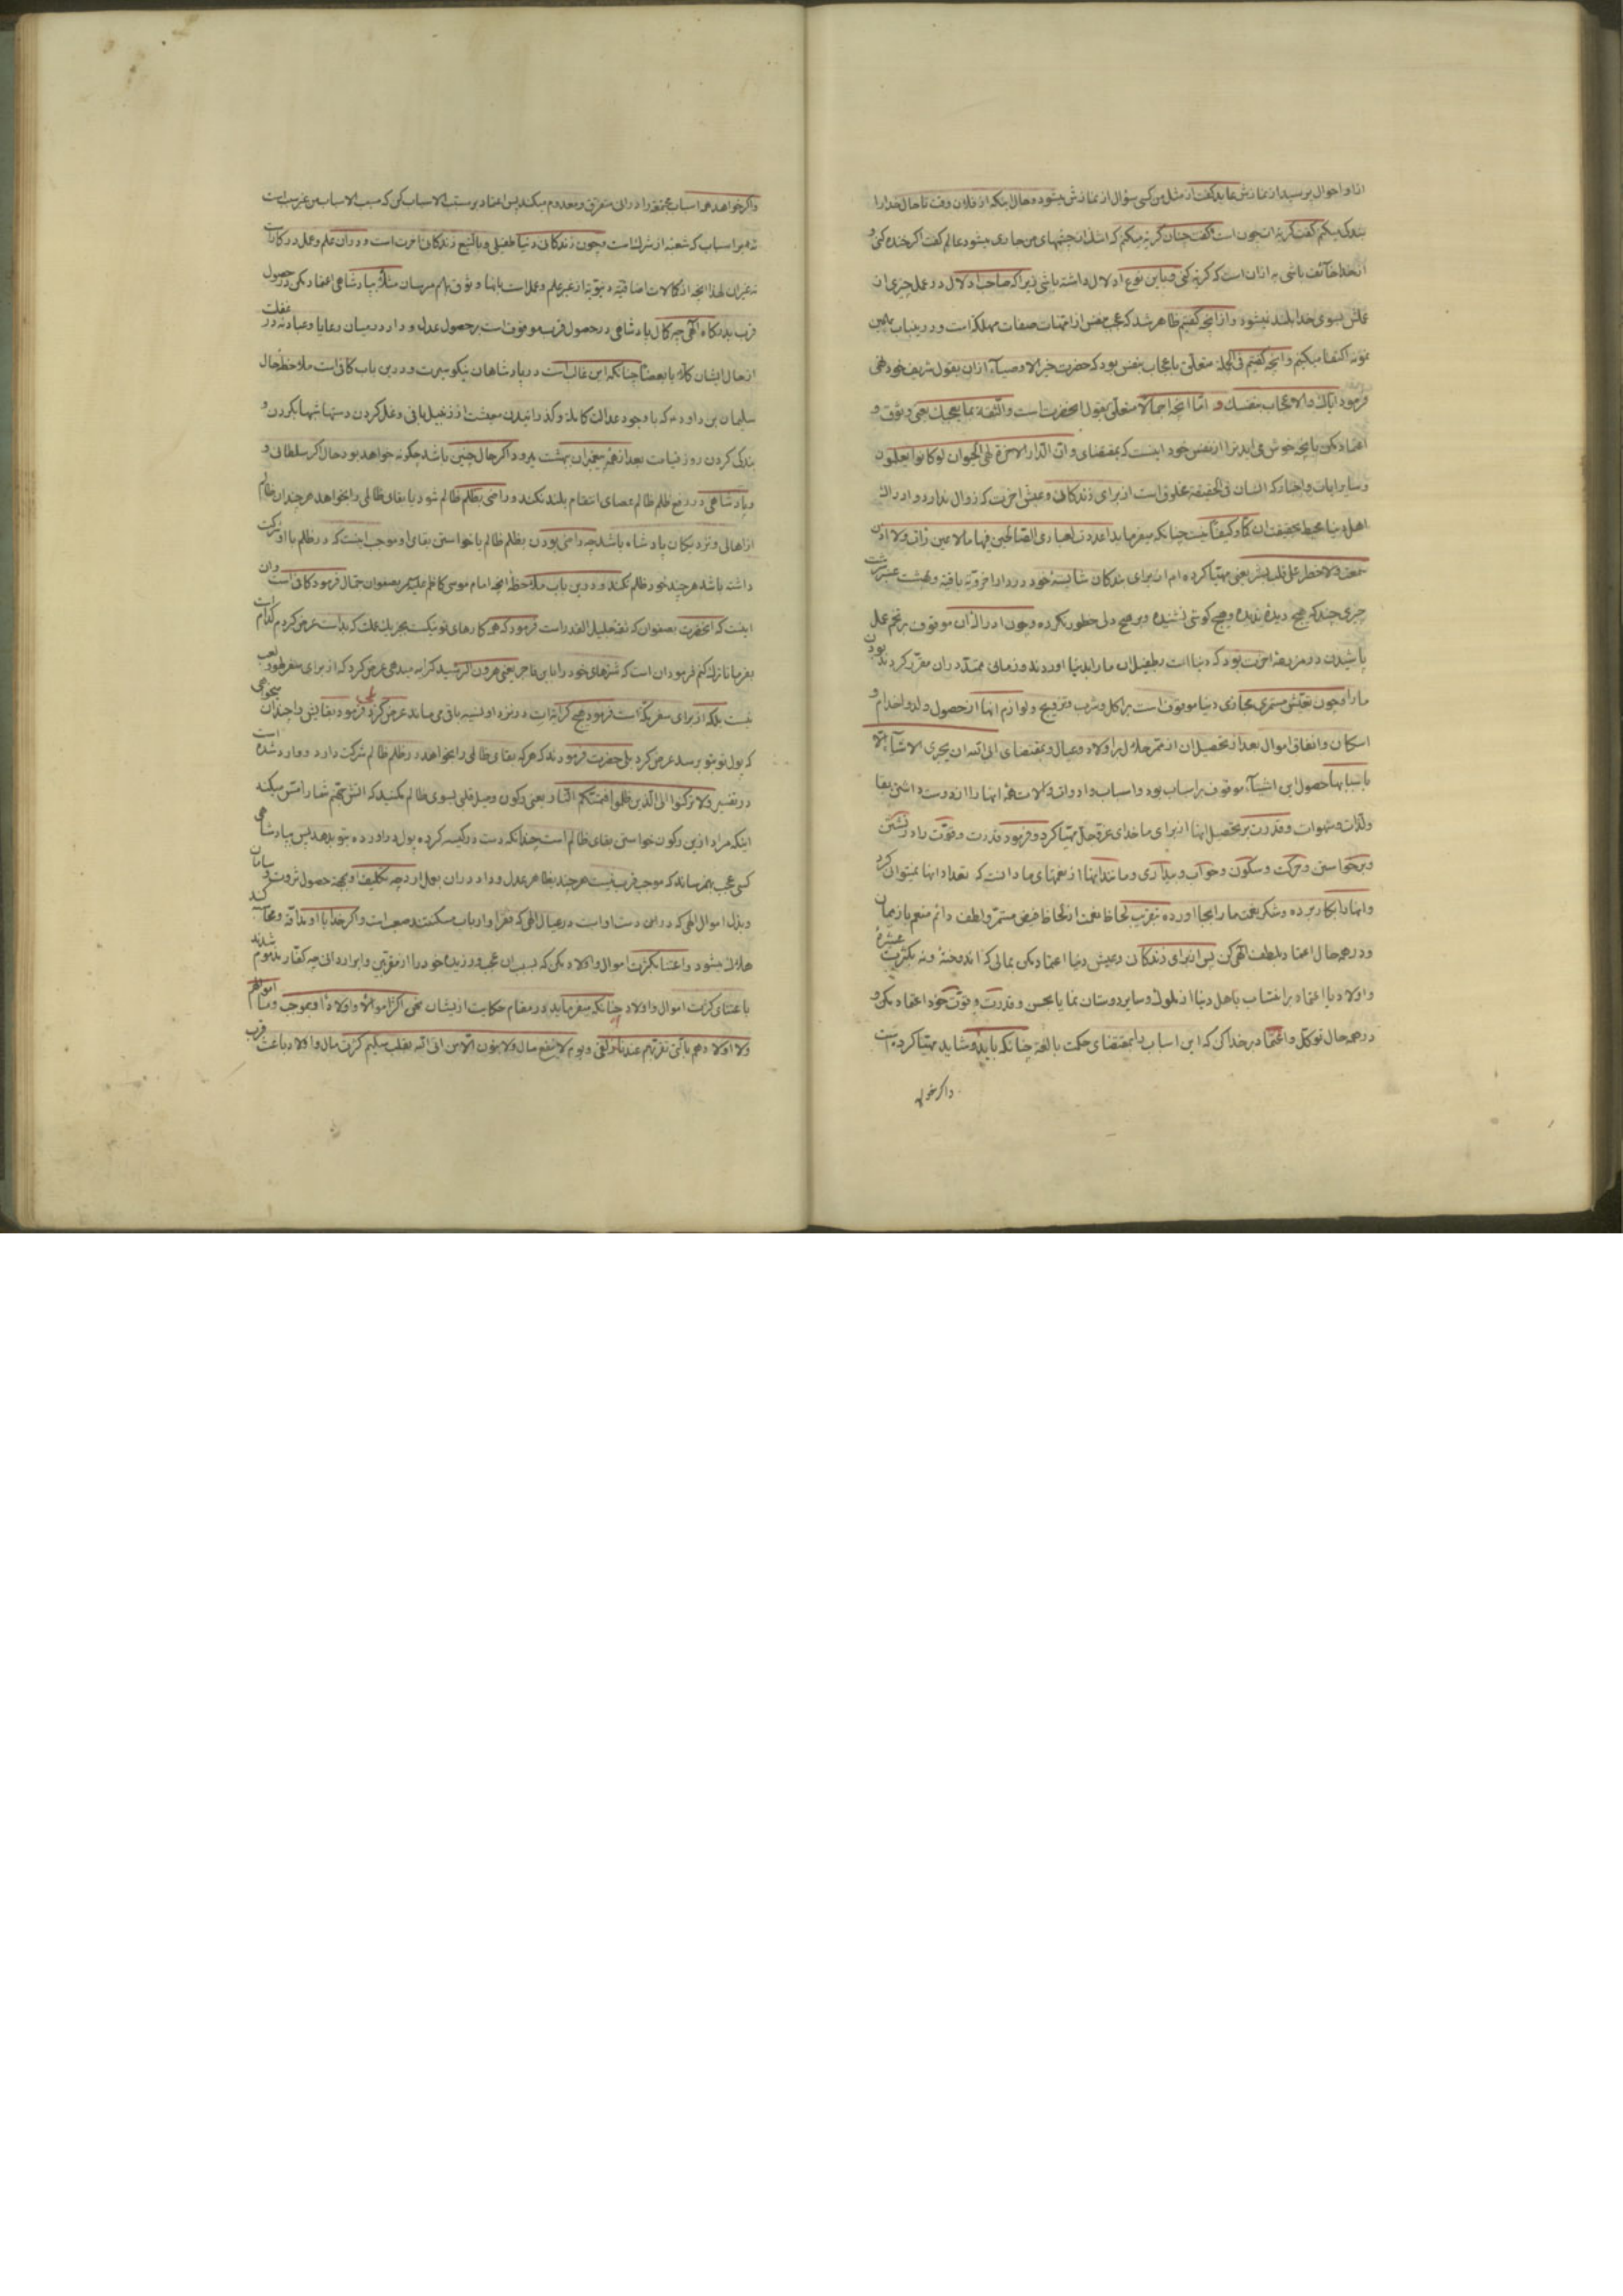 او احوال پرسید از نمازش عابد گفت از مثل من کسی سؤال از نمازش میشود و حال اینکه از فلان وقت تا حال خدا را
بندگی میکنم گفت گریه ات چون است گفت چنان گریه میکنم که اشک از چشمهای من جاری میشود عالم گفت اگر خنده کنی و
از خدا خائف باشی به ازان است که گریه کنی و باین نوع ادلال داشته باشی زیرا که صاحب ادلال در عمل چیزی از
عملش بسوی خدا بلند نمیشود و از آنچه گفتیم ظاهر شد که عجب بنفس از امهات صفات مهلکه است و درینباب باین
نمونه اکتفا میکنیم و آنچه گفتیم فی الجمله متعلق باعجاب بنفس بود که حضرت خیر الاوصیاء ازان بقول شریف خود نهی
فرمود ایاک والاعجاب بنفسک و اما آنچه اجمالا متعلق بقول آنحضرت است والثقة بما یعجبک یعنی وثوق و
اعتماد مکن بآنچه خوش می آید ترا از نفس خود اینست که بمقتضای وان الدار الاخرة لهی الحیوان لو کانوا یعلمون
و سایر آیات و اخبار که انسان فی الحقیقة مخلوق است از برای زندگانی و عیش آخرت که زوال ندارد و ادراک
اهل دنیا محیط بحقیقت ان کما و کیفا نیست چنانکه میفرماید اعددت لعبادی الصالحین فیها ما لا عین رأت ولا اذن
سمعت ولا خطر علی قلب بشر یعنی مهیا کرده ام از برای بندگان شایستهٔ خود در دار اخرویه و بهشت عنبر سرشت
چیزی چند که هیچ دیدهٔ ندیده و هیچ گوشی نشنیده و بر هیچ دلی خطور نکرده و چون ادراک آن موقوف بر تخم عمل
پاشیدن در مزرعهٔ آخرت بود که دنیا است بطفیل آن ما را بدنیا آوردند و زمانی ممتد دران مقرر کردند بودن
ما را و چون تعیش مستمری مجازی دنیا موقوف است بر اکل و شرب و تزویج و لوازم آنها از حصول ولد و اخدام و
اسکان و انفاق اموال بعد از تحصیل آن از ممر حلال بر اولاد و عیال و بمقتضای ابی الله ان یجری الاشیاء الا
باسبابها حصول این اشیاء موقوف بر اسباب بود و اسباب و ادوات و آلات همهٔ آنها را از دوست داشتن بقا
و لذات و شهوات و قدرت بر تحصیل آنها از برای ما خدای عز و جل مهیا کرد و فرمود قدرت و قوت راه رفتن
و برخواستن و حرکت و سکون و خواب و بیداری و مانند اینها از نعمتهای ما دانست که تعداد آنها نمیتوان کرد
و آنها را بکار برده و شکر نعمت ما را بجا آورده
و در همه حال اعتماد بلطف الهی کن پس از برای زندگانی و عیش دنیا اعتماد مکن بمالی که اندوختهٔ و نه بکثرت عشیره
و اولاد یا اعتماد بر انتساب باهل دنیا از ملوک و سایر دوستان نمایا بحسن و قدرت و قوت خود اعتماد مکن و
در همه حال توکل و اعتماد بر خدا کن که این اسباب را بمقتضای حکمت بالغه چنانکه باید و شاید مهیا کرده است
و اگر خواهد
و اگر خواهد همه اسباب مجتمعه را در آن متفرق و معدوم میکند پس اعتماد بر مسبب الاسباب کن که مسبب الاسباب من غیر سبب است
نه بر اسباب که شعبه از شرک است و چون زندگانی دنیا طفیلی و بالتبع زندگانی آخرت است و دران علم و عمل در کار است
نه غیر آن لهذا آنچه از کمالات اضافیه دنیویه از غیر علم و عمل است بآنها وثوق بهم مرسان مثلا بپادشاهی اعتماد مکن در حصول
قرب بدرگاه الهی چه کمال پادشاهی در حصول قرب موقوف است بر حصول عدل و داد در میان رعایا و عباد نه در غفلت
از حال ایشان کلا یا بعضا چنانکه این غالب است در پادشاهان نیکو سیرت و درین باب کافی است ملاحظهٔ حال
سلیمان بن داود که با وجود عدالت کامله و گذرانیدن معیشت از زنبیل بافی و غل کردن دستها شبها بگردن و
بندگی کردن روز قیامت بعد از همهٔ پیغمبران ببهشت میرود اگر حال چنین باشد چگونه خواهد بود حال اگر سلطانی و
و پادشاهی در دفع ظلم ظالم عصای انتقام بلند نکند و راضی بظلم ظالم شود یا بقای ظالمی را بخواهد هر چند ان ظالم
از اهالی و نزدیکان پادشاه باشد چه راضی بودن بظلم ظالم یا خواستن بقای او موجب اینست که در ظلم با او شرکت
داشته باشد هر چند خود ظلم نکند و درین باب ملاحظهٔ آنچه امام موسی کاظم علیه السلام بصفوان جمال فرمود کافی است و ان
اینست که آنحضرت بصفوان که ثقه جلیل القدر است فرمود که همه کارهای تو نیکست بجز یک عملت که بد است عرض کردم کدام است
بفرما تا ترک کنم فرمود ان است که شترهای خود را باین فاجر یعنی هرون الرشید کرایه میدهی عرض کرد که از برای سفر لهو و لعب
نیست بلکه از برای سفر مکه است فرمود هیچ کرایه ات در نزد او نسیه باقی می ماند عرض کرد بلی فرمود بقایش را چندان میخواهی
که پول تو بتو برسد عرض کرد بلی حضرت فرمودند که هر که بقای ظالمی را بخواهد در ظلم ظالم شرکت دارد و وارد شده است
در تفسیر ولا ترکنوا الی الذین ظلموا فتمسکم النار یعنی رکون و میل قلبی بسوی ظالم نکنید که آتش جهنم شما را مس میکند
اینکه مراد ازین رکون خواستن بقای ظالم است چندانکه دست در کیسه کرده پول در آورده بتو بدهد پس بپادشاهی
کسی عجب بهم رساند که موجب قرب نیست هر چند بظاهر عدل و داد دران بعمل آرد چه تکلیف او بجهة حصول ثروت و سامان
و بذل اموال الهی که در این دست اوست در عیال الهی که فقرا و ارباب مسکنتند صعب است و اگر خدا با او مداقه و محاسبه کند
هلاک میشود و اعتنا بکثرت اموال و اولاد مکن که بسبب ان عجب ورزیده خود را از مقربین و ابرار دانی چه کفار مذموم شدند
باعتنای کثرت اموال و اولاد چنانکه میفرماید در مقام حکایت از ایشان نحن اکثر اموالا و اولادا و بموجب وما اموالکم
ولا اولادکم بالتی تقربکم عندنا زلفی و یوم لا ینفع مال ولا بنون الا من اتی الله بقلب سلیم کثرت مال و اولاد باعث قرب